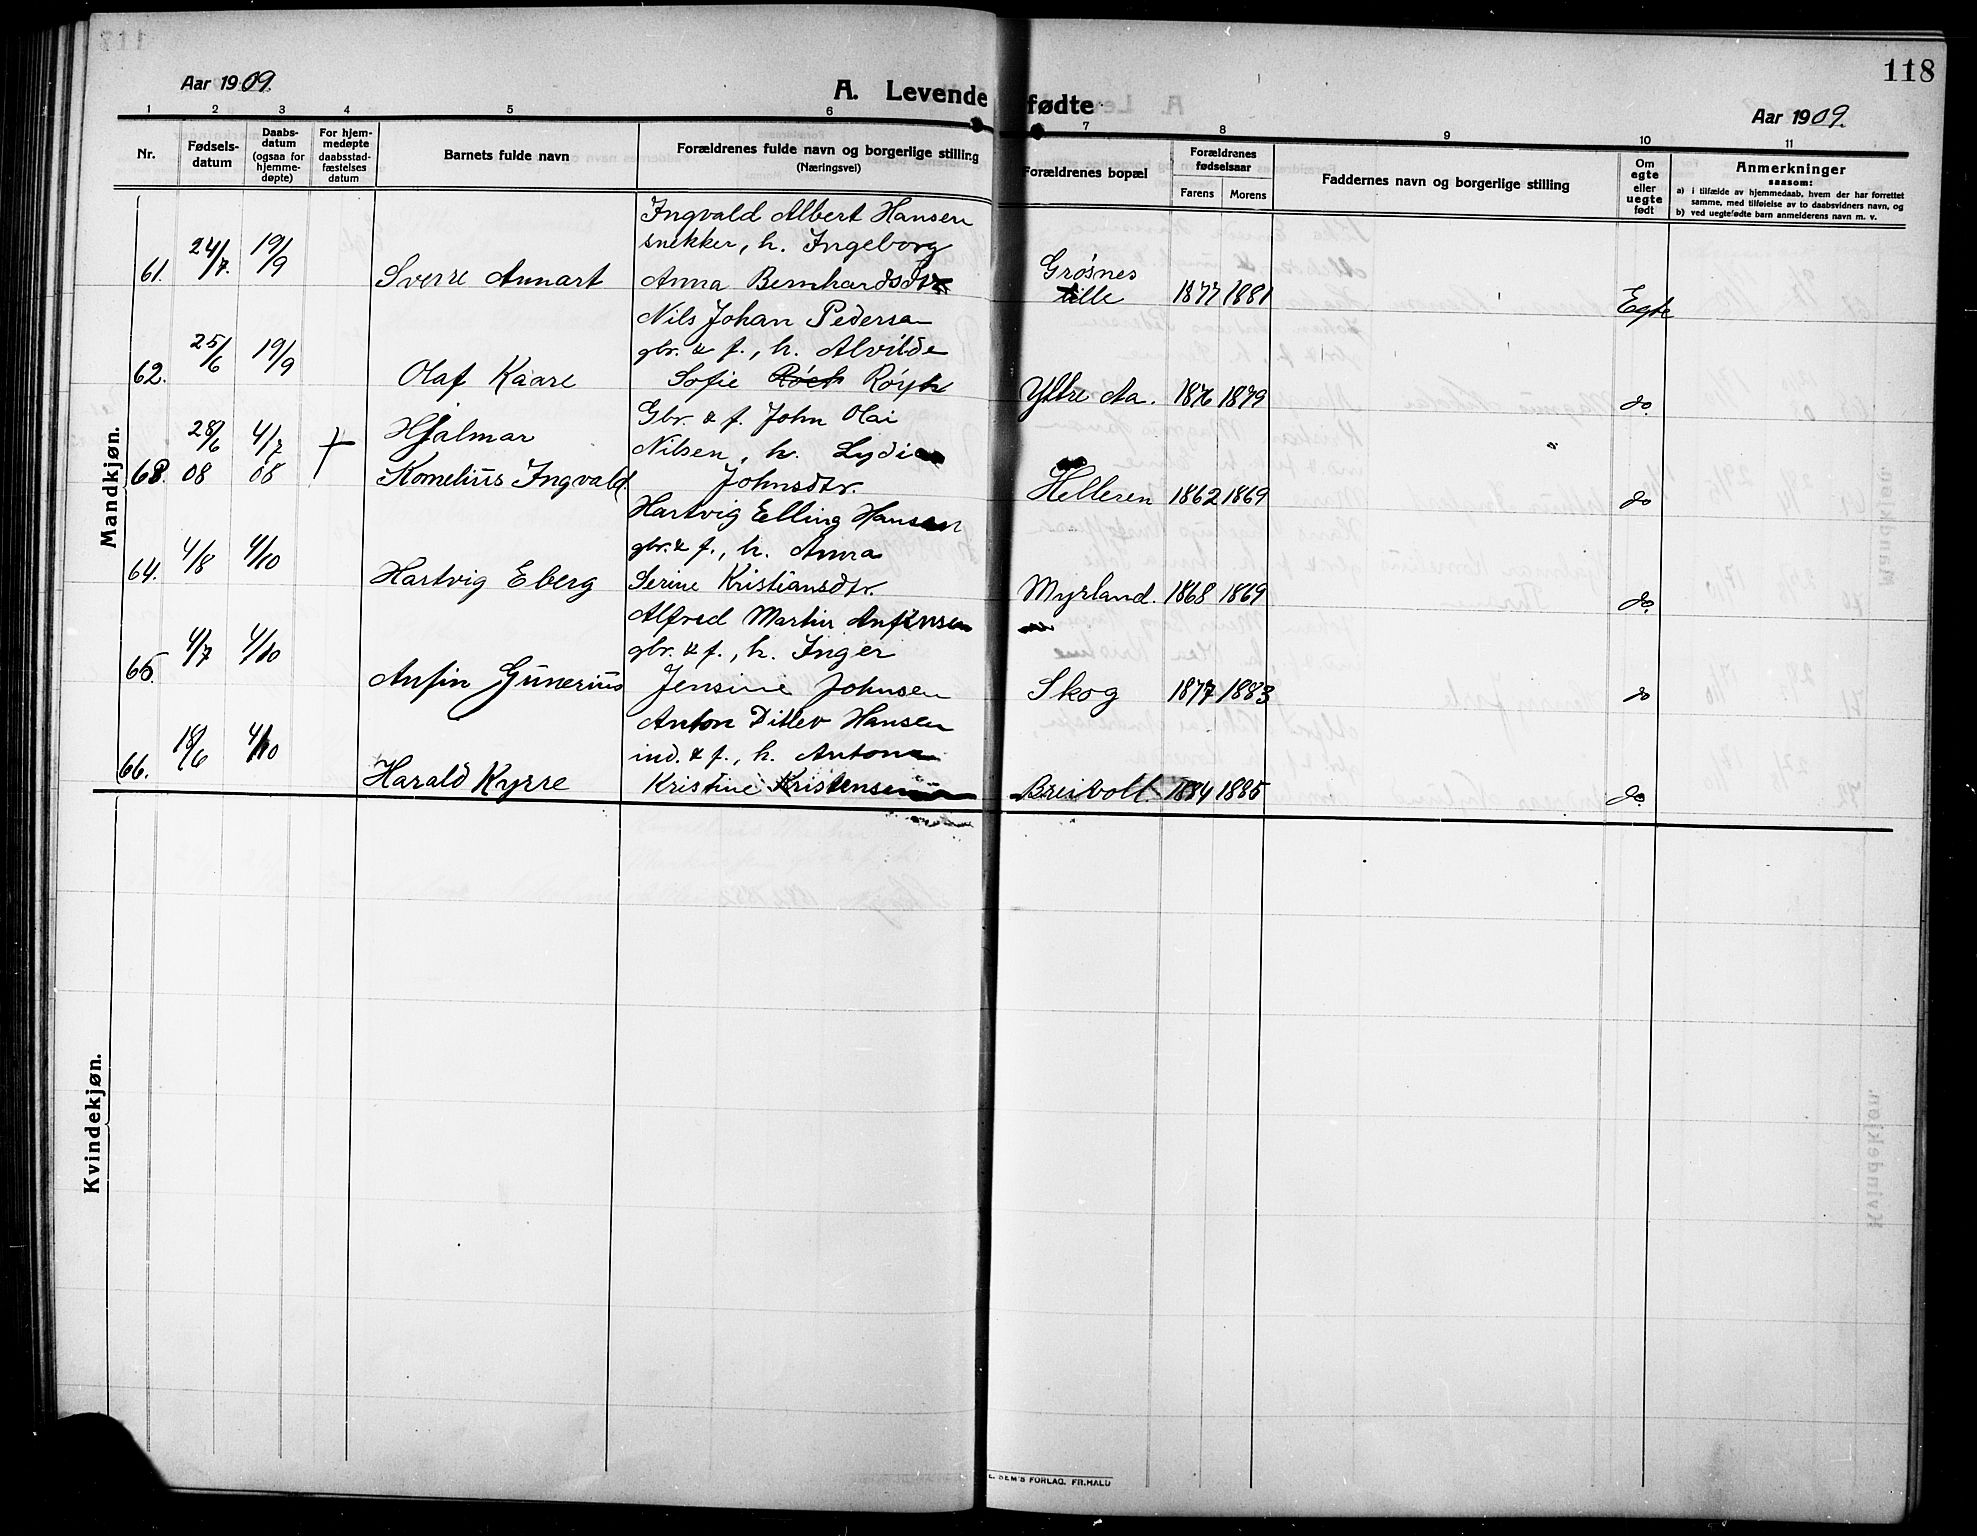 118
Aar 1909.
A. Levende fødte
Aar 1909.
1 2 3 4 5 6 7 8 9 10 11
Nr.
Fødsels-
datum
Daabs-
datum
(ogsaa for
hjemme-
døpte)
For hjem-
medøpte
daabsstad-
fæstelses
datum
Barnets fulde navn
Forældrenes fulde navn og borgerlige stilling
(Næringsvei)
Forældrenes bopæl
Forældrenes
fødselsaar
Farens Morens
Faddernes navn og borgerlige stilling
Om
egte
eller
uegte
født
Anmerkninger
saasom:
a) i tilfælde av hjemmedaab, hvem der har forrettet
samme, med tilføielse av to daabsvidners navn, og
b) ved uegtefødte barn anmelderens navn m. v.
Mandkjøn.
Ingvald Albert Hansen
24/7. 19/9 snekker, h. Ingeborg
61. Sverre Annart Anna Bernhardsdtr Grøsnes
lille 1877 1881 Egte
Nils Johan Pedersen
25/6 19/9 gbr. & f., h. Alvilde
62. Olaf Kaare Sofie Røyk Yttre Aa. 1876 1879 do.
Gbr. & f. John Olai
28/6 4/7 + Hjalmar Nilsen, h. Lydia
63. 08 08 Kornelius Ingvald. Johnsdtr. Helleren 1862 1869 do
Hartvig Elling Hansen
4/8 4/10 gbr. & f., h. Anna
64. Hartvig Eberg Serine Kristiansdtr. Myrland. 1868 1869 do.
Alfred Martin Anfinsen
4/7 4/10 gbr. & f., h. Inger
65. Anfin Gunerius Jensine Johnsen Skog 1877 1883 do
Anton Ditlev Hansen
18/6 4/10 ind. & f., h. Antone
66. Harald Kyrre Kristine Kristensen Breivoll. 1884 1885 do.
Kvindekjøn.
E. SEM'S FORLAG, FR.HALD